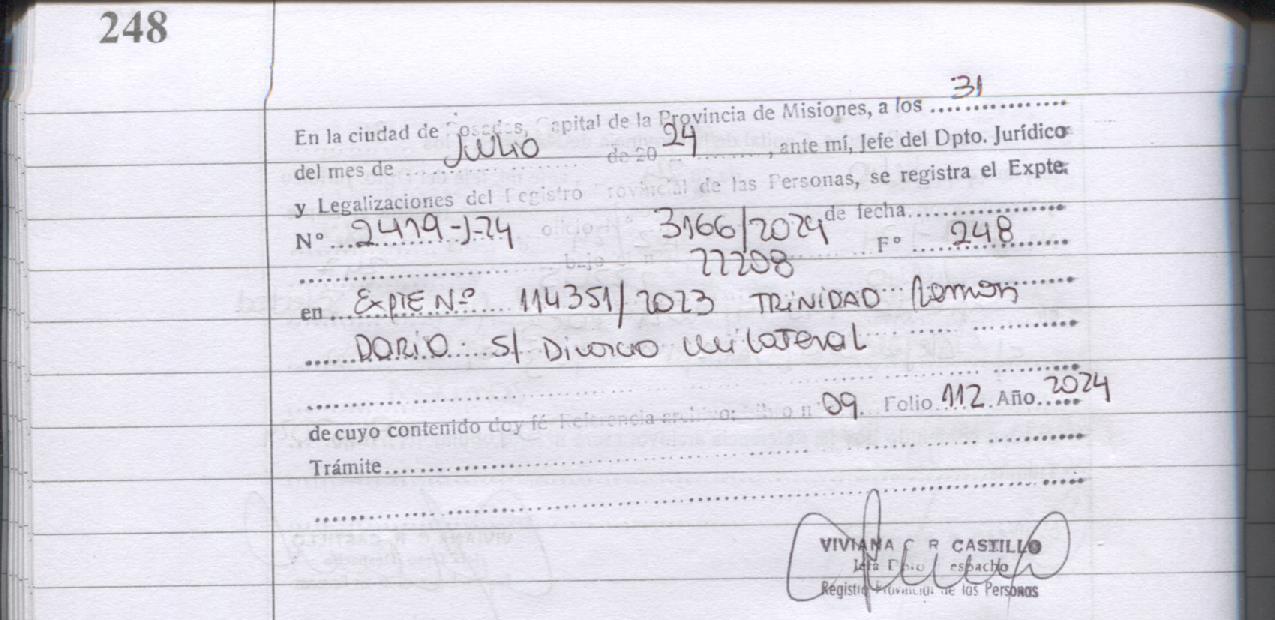 248
En la ciudad de Posadas, Capital de la Provincia de Misiones, a los 31
del mes de Julio de 2024, ante mí, Jefe del Dpto. Jurídico
y Legalizaciones del Registro Provincial de las Personas, se registra el Expte.
Nº 2419-J-24 oficio nº 3166/2024 de fecha
bajo el n 22208 Fº 248
en EXPTE Nº 114351/2023 TRINIDAD Ramon
DARIO S/ Divorcio unilateral
de cuyo contenido doy fé Referencia archivo: Libro n 09. Folio 112. Año 2024
Trámite
VIVIANA C R CASTILLO
Jefa Dpto Despacho
Registro Provincial de las Personas